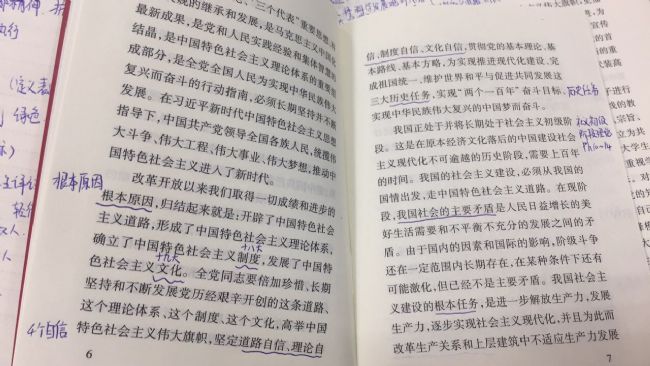 观的继承和发展，是马克思主义中国化
最新成果，是党和人民实践经验和集体智慧的
结晶，是中国特色社会主义理论体系的重要组
成部分，是全党全国人民为实现中华民族伟大
复兴而奋斗的行动指南，必须长期坚持并不断
发展。在习近平新时代中国特色社会主义思想
指导下，中国共产党领导全国各族人民，统揽伟
大斗争、伟大工程、伟大事业、伟大梦想，推动中
国特色社会主义进入了新时代。
根本原因
改革开放以来我们取得一切成绩和进步的
根本原因，归结起来就是：开辟了中国特色社会
主义道路，形成了中国特色社会主义理论体系，
确立了中国特色社会主义制度，发展了中国特
十九大
色社会主义文化。全党同志要倍加珍惜、长期
坚持和不断发展党历经艰辛开创的这条道路、
这个理论体系、这个制度、这个文化，高举中国
4个自信
特色社会主义伟大旗帜，坚定道路自信、理论自
6
信、制度自信、文化自信，贯彻党的基本理论、基
本路线、基本方略，为实现推进现代化建设、完
成祖国统一、维护世界和平与促进共同发展这
三大历史任务，实现“两个一百年”奋斗目标、
历史任务
实现中华民族伟大复兴的中国梦而奋斗。
我国正处于并将长期处于社会主义初级阶
段。这是在原本经济文化落后的中国建设社会
主义现代化不可逾越的历史阶段，需要上百年
的时间。我国的社会主义建设，必须从我国的
国情出发，走中国特色社会主义道路。在现阶
段，我国社会的主要矛盾是人民日益增长的美
好生活需要和不平衡不充分的发展之间的矛
盾。由于国内的因素和国际的影响，阶级斗争
还在一定范围内长期存在，在某种条件下还有
可能激化，但已经不是主要矛盾。我国社会主
义建设的根本任务，是进一步解放生产力，发展
生产力，逐步实现社会主义现代化，并且为此而
改革生产关系和上层建筑中不适应生产力发展
7